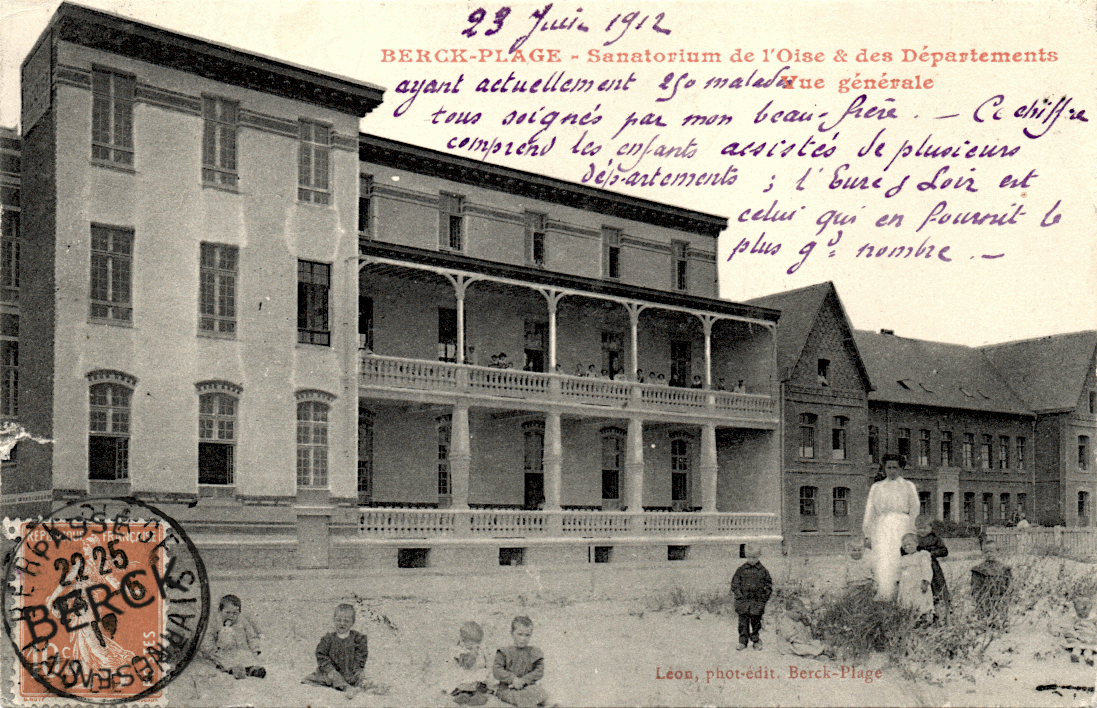 23 Juin 1912
BERCK-PLAGE - Sanatorium de l'Oise & des Départements
Vue générale
ayant actuellement 250 malades
tous soignés par mon beau-frère. — Ce chiffre
comprend les enfants assistés de plusieurs
départements ; l'Eure & Loir est
celui qui en fournit le
plus gd nombre. —
RÉPUBLIQUE FRANÇAISE
22 25
BERCK
10c
POSTES
PAS-DE-CALAIS
Léon, phot-édit. Berck-Plage